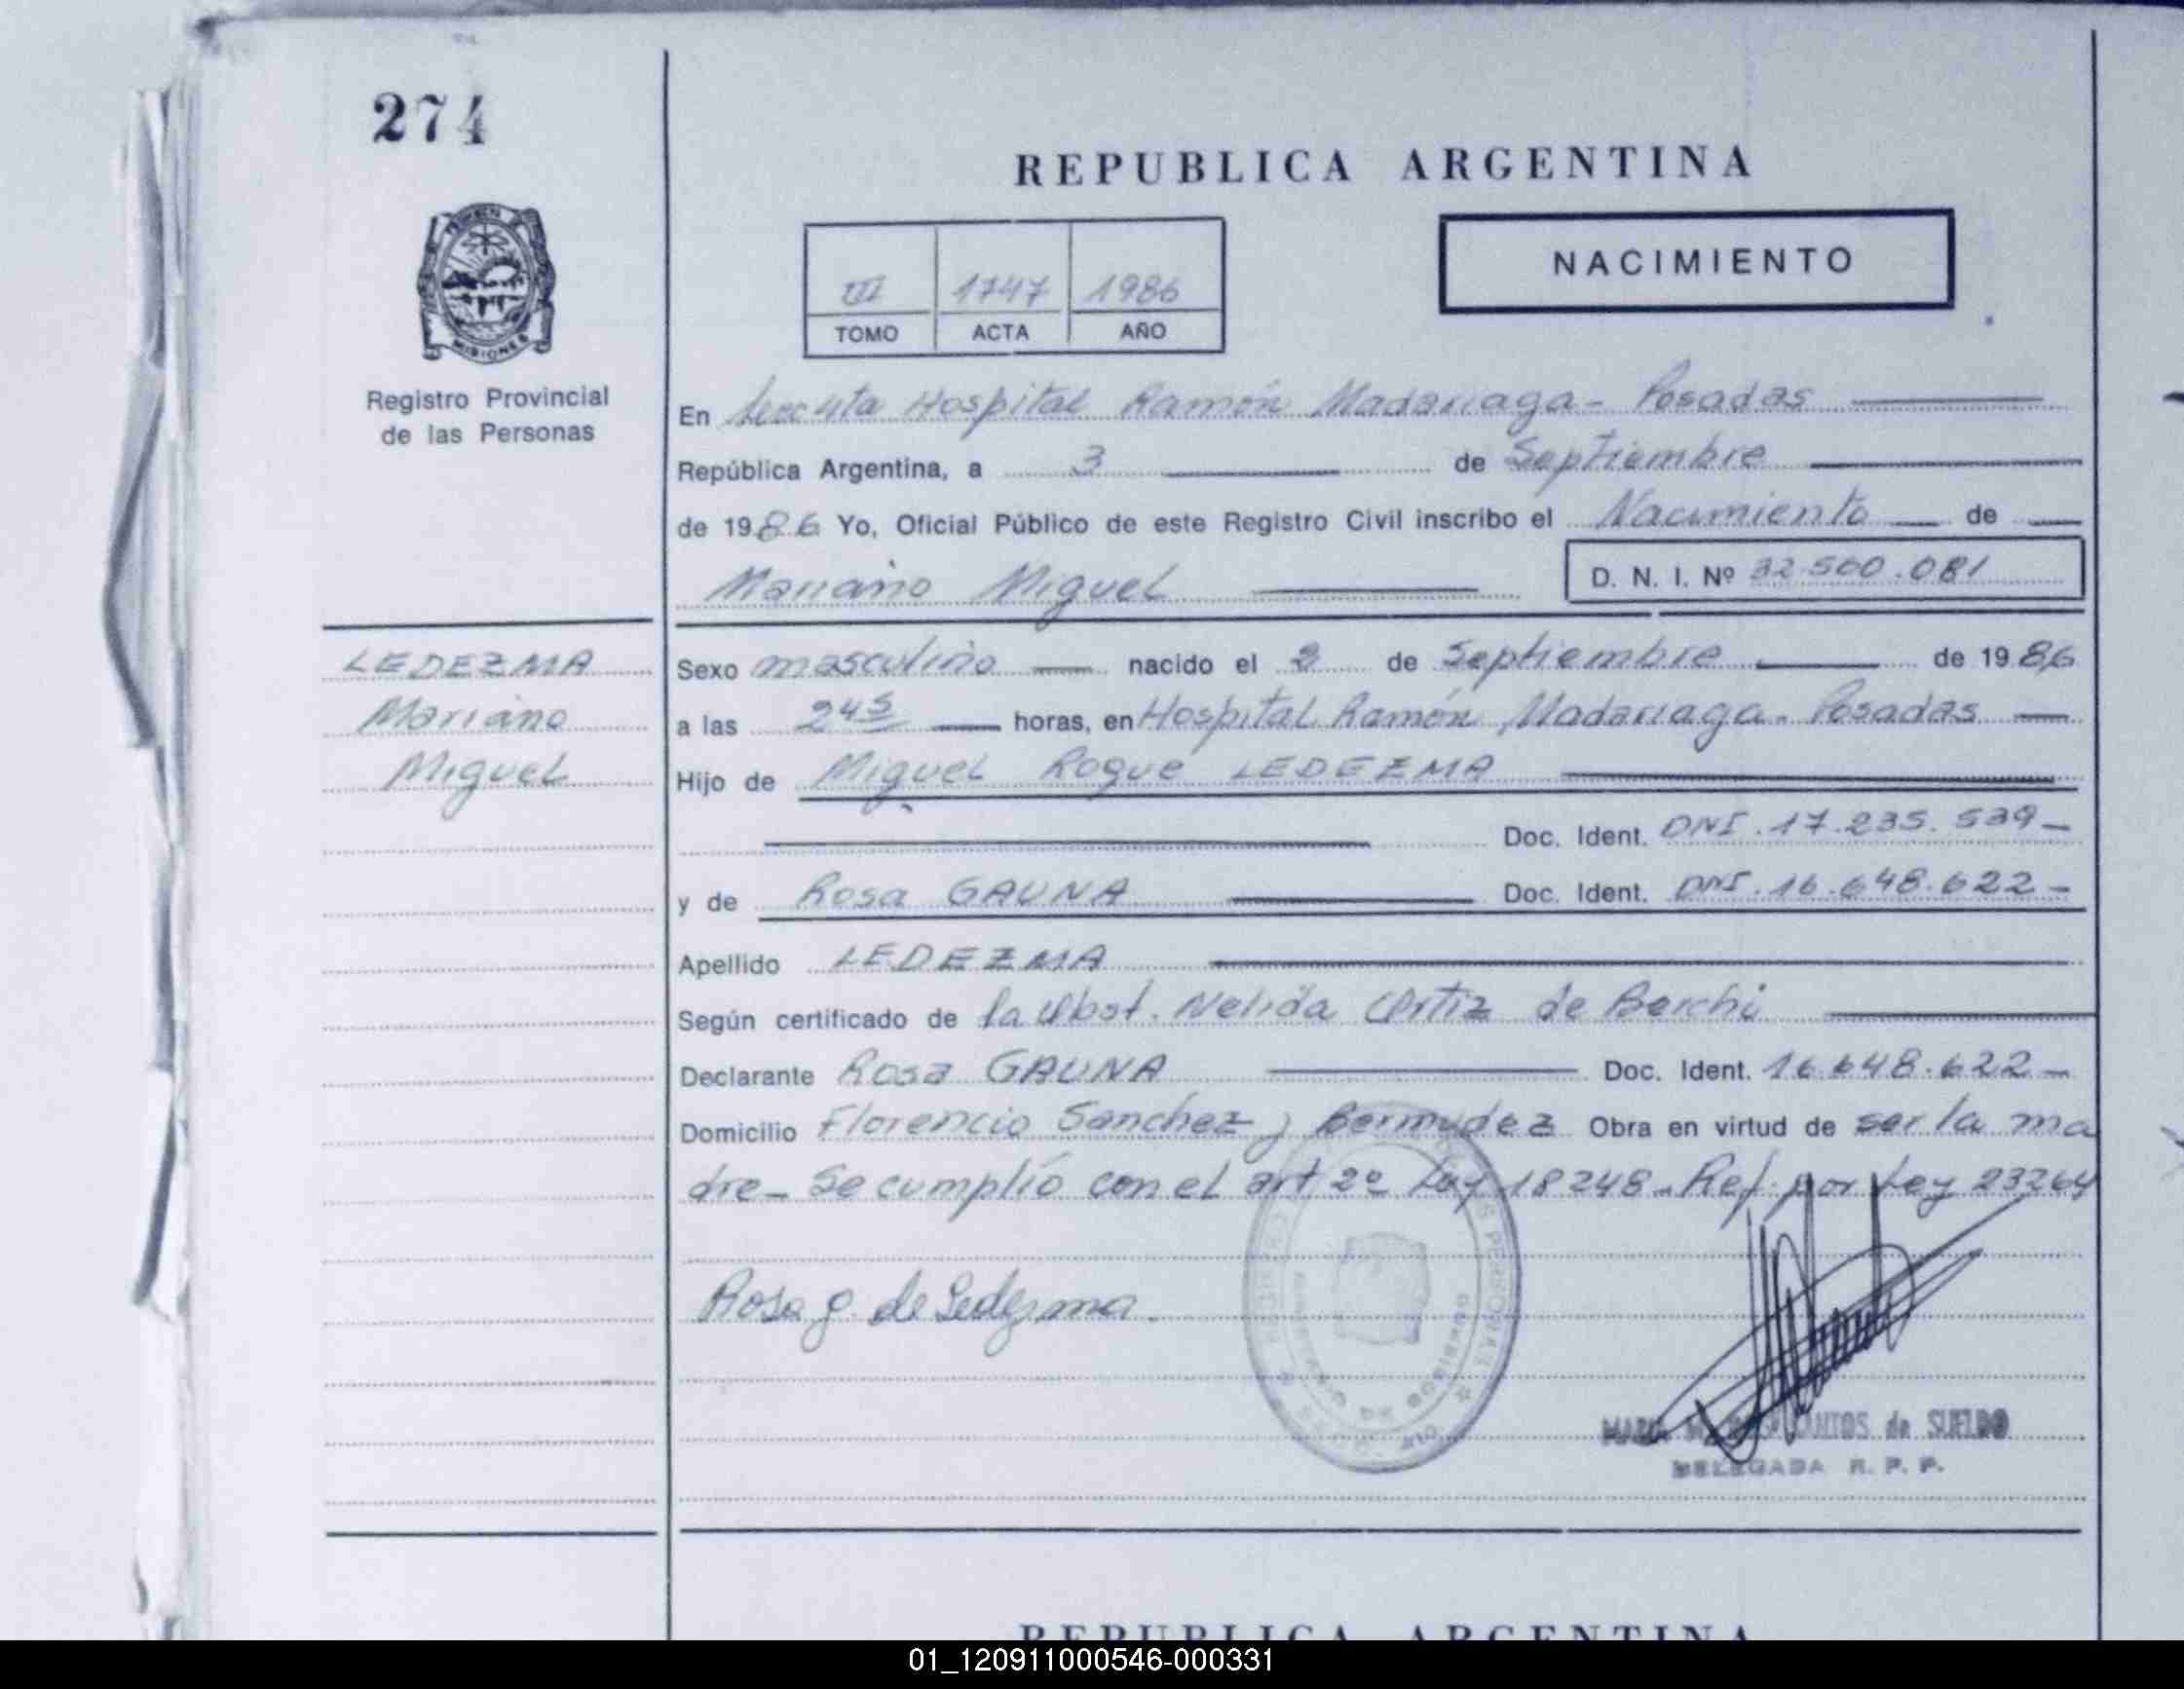 274
REPUBLICA ARGENTINA
NACIMIENTO
III 1747 1986
TOMO ACTA AÑO
MISIONES
Registro Provincial
de las Personas
En Hospital Ramón Madariaga - Posadas
República Argentina, a 3 de Septiembre
de 1986 Yo, Oficial Público de este Registro Civil inscribo el Nacimiento de
Mariano Miguel D. N. I. Nº 32.500.081
LEDEZMA
Mariano
Miguel
Sexo masculino nacido el de Septiembre de 1986
a las 24⁵ horas, en Hospital Ramón Madariaga - Posadas
Hijo de Miguel Roque LEDEZMA
Doc. Ident. DNI. 17.235.539-
y de Rosa GAUNA Doc. Ident. DNI. 16.648.622-
Apellido LEDEZMA
Según certificado de la Obst. Nelida Ortiz de Berchi
Declarante Rosa GAUNA Doc. Ident. 16.648.622-
Domicilio Florencio Sanchez y Bermudez Obra en virtud de ser la ma
dre- Se cumplió con el art 2º Ley 18248- Ref. por Ley 23264
Rosa G. de Ledezma.
MARIA SANTOS de SUELDO
DELEGADA R. P. P.
REPUBLICA ARGENTINA
01_120911000546-000331